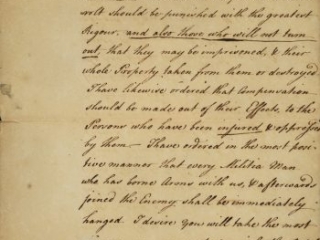 volt should be punished with the greatest
Rigour, and also those who will not turn
out, that they may be imprisoned, & their
whole Property taken from them or destroyed
I have likewise ordered that Compensation
should be made out of their Effects, to the
Persons who have been injured & oppressed
by them — I have ordered in the most posi-
tive manner that every Militia Man
who has borne Arms with us, & afterwards
joined the Enemy shall be immediately
hanged. I desire you will take the most